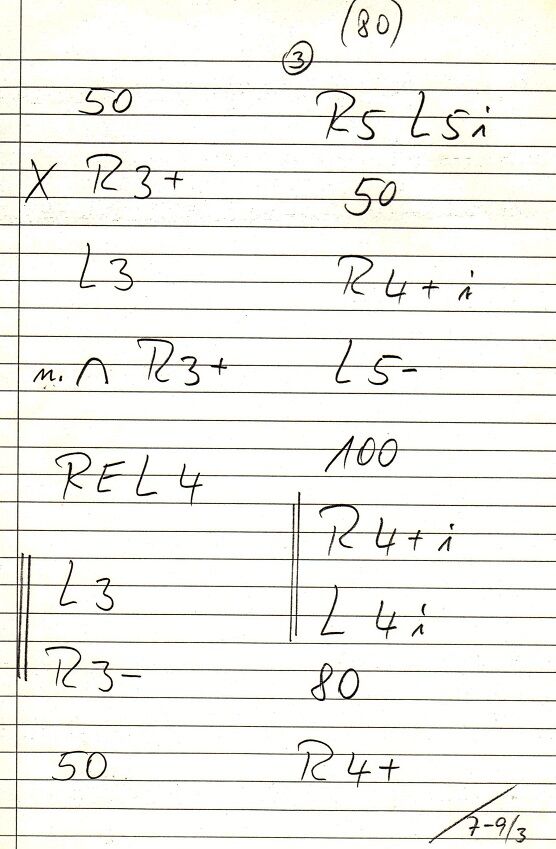 (80)
3
50
X R3+
L3
n. ∩ R3+
REL4
L3
R3-
50
R5 L5i
50
R4+i
L5-
100
R4+i
L4i
80
R4+
7-9/3